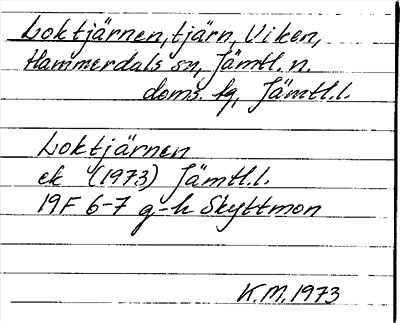 Loktjärnen, tjärn, Viken,
Hammerdals sn, Jämtl. n.
doms. fg, Jämtl.l.
Loktjärnen
ek (1973) Jämtl.l.
19F 6-7 g-h Skyttmon
K.M. 1973